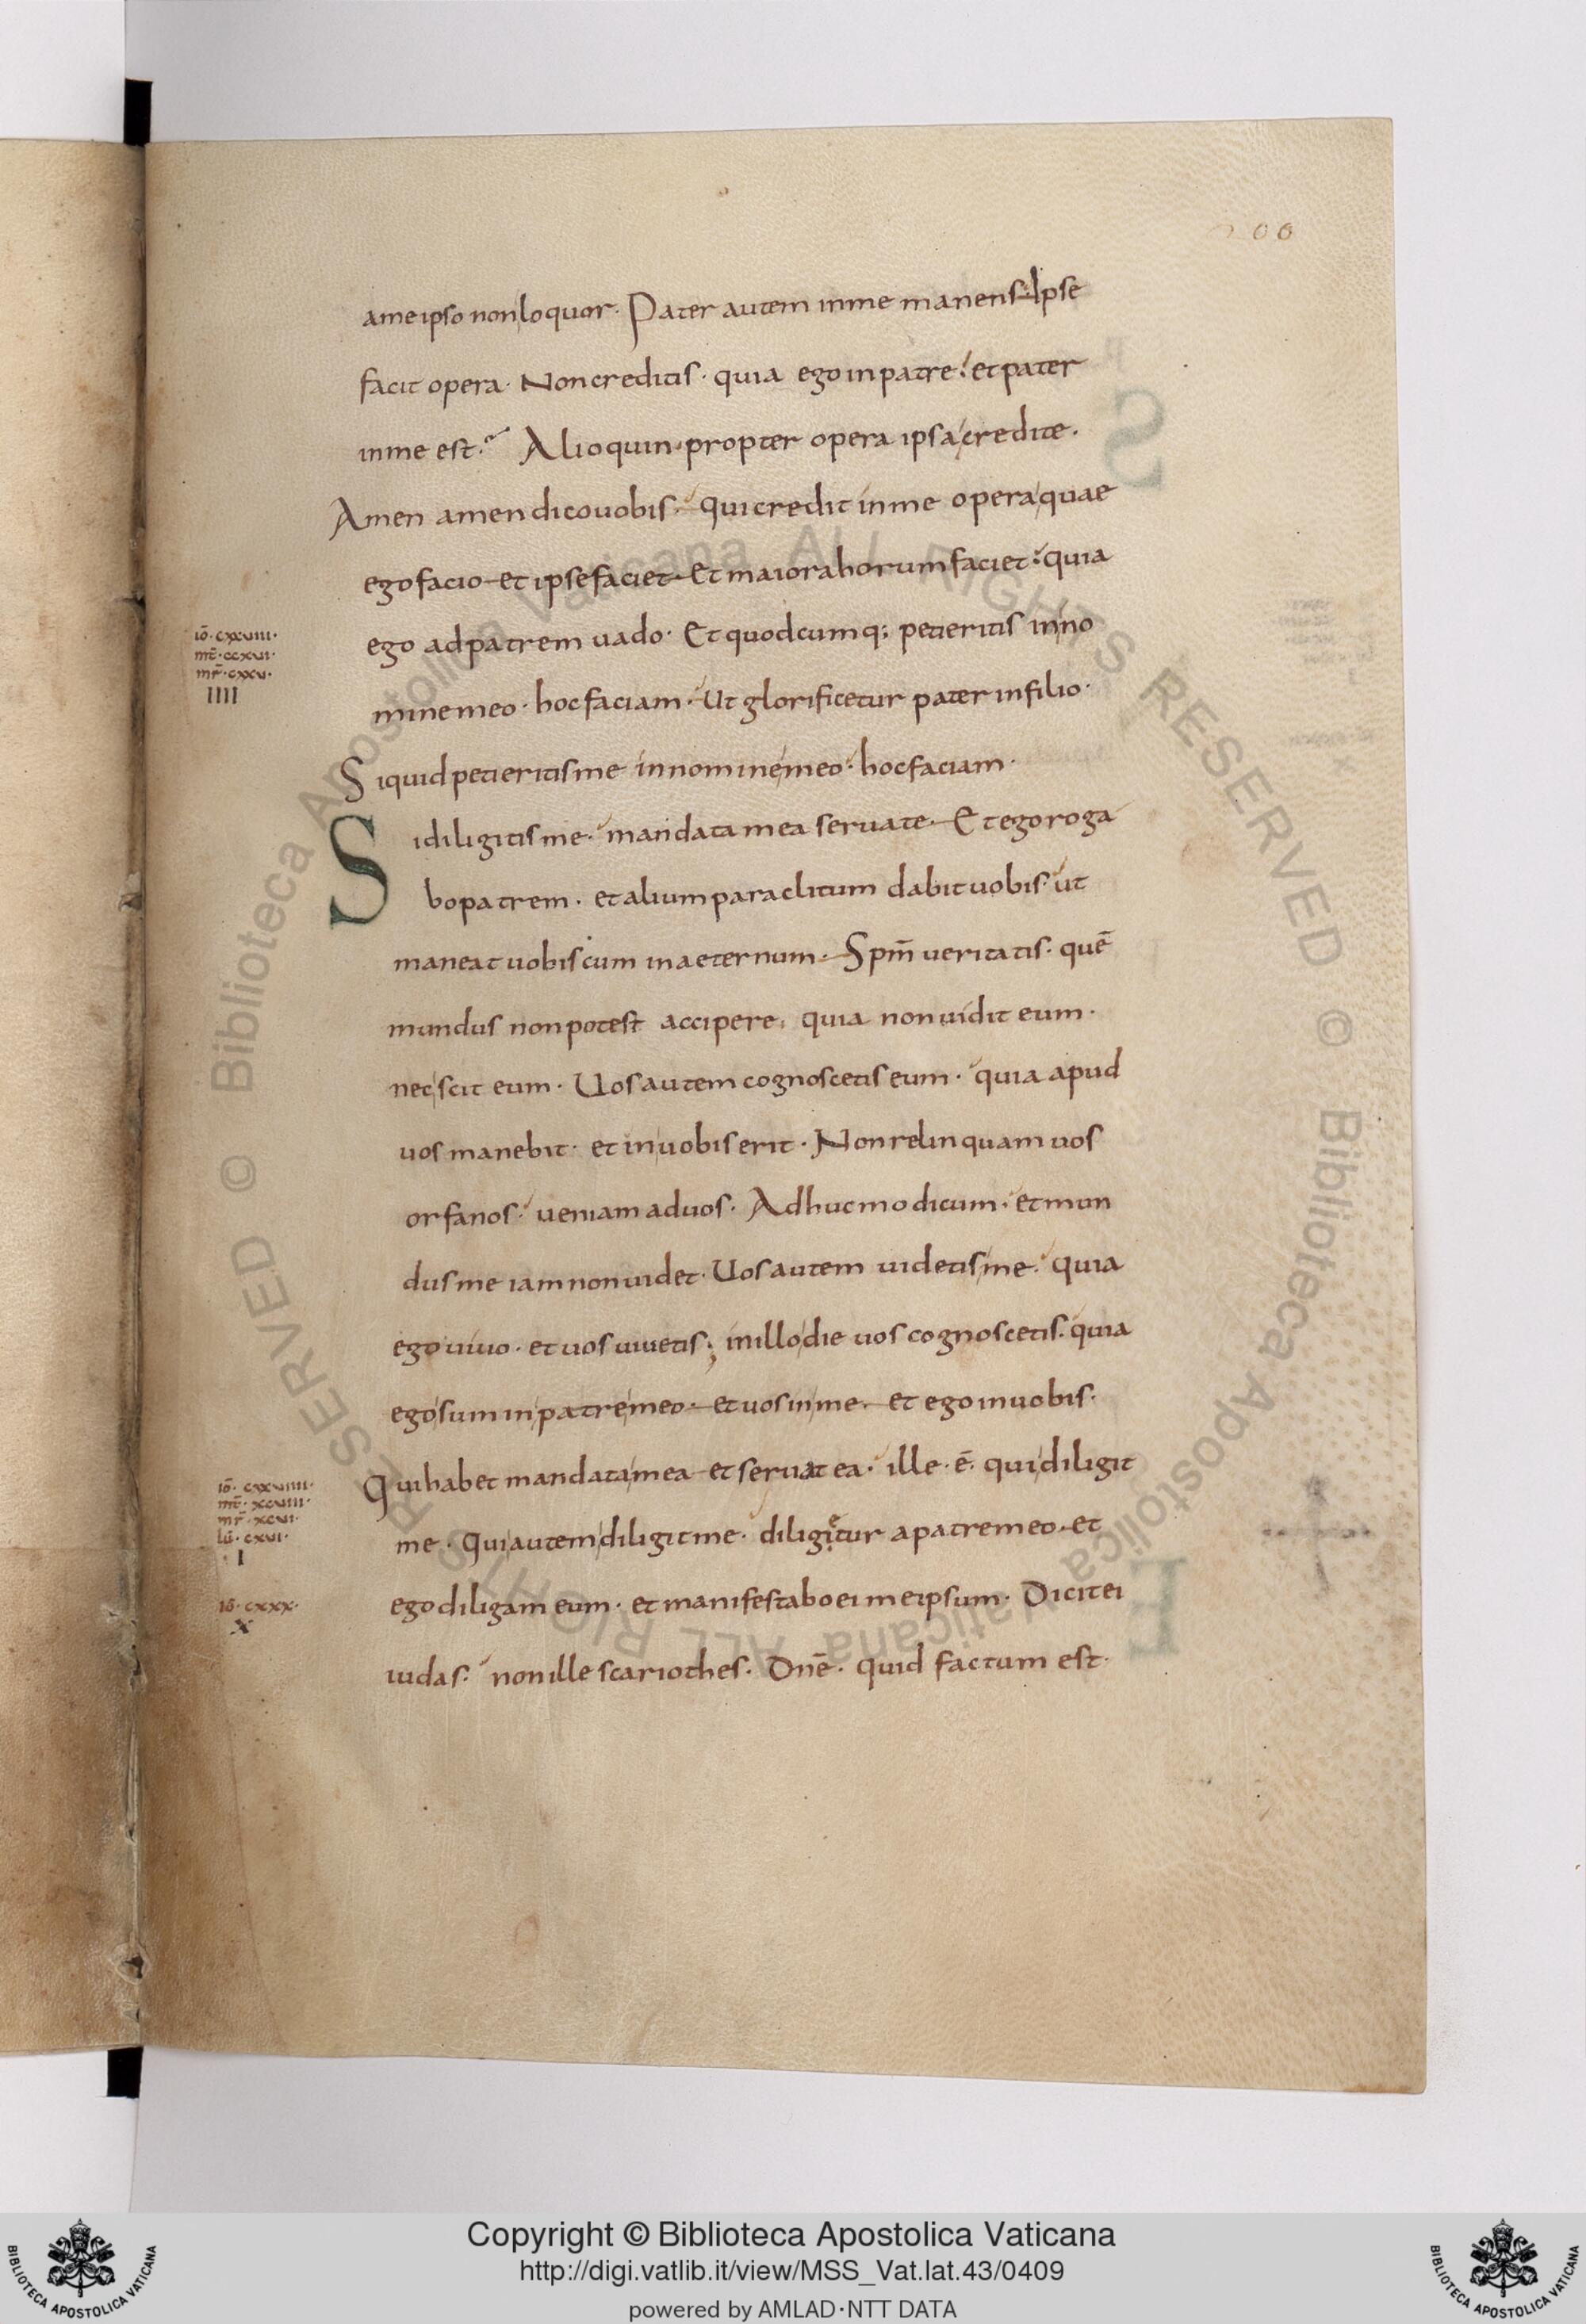 200
ame ipso non loquor. Pater autem inme manens. Ipse
facit opera. Non creditis. quia ego inpatre. et pater
inme est. Alioquin propter opera ipsa credite.
Amen amen dico uobis. qui credit inme opera quae
ego facio et ipse faciet. Et maiora horum faciet. quia
ego adpatrem uado. Et quodcumq; petieritis inno
mine meo. hoc faciam. Ut glorificetur pater infilio.
Siquid petieritis me innomine meo. hoc faciam.
Si diligitis me. mandata mea seruate. Et ego roga
bo patrem. et alium paraclitum dabit uobis. ut
maneat uobiscum inaeternum. Spm̄ veritatis. quē
mundus non potest accipere. quia non uidit eum.
nec scit eum. Uos autem cognoscetis eum. quia apud
uos manebit. et inuobis erit. Non relinquam uos
orfanos. ueniam aduos. Adhuc modicum. et mun
dus me iam non uidet. Uos autem uidetis me. quia
ego uiuo. et uos uiuetis; inillo die uos cognoscetis. quia
ego sum inpatre meo. et uos inme. et ego inuobis.
Qui habet mandata mea et seruat ea. ille. ē. qui diligit
me. Qui autem diligit me. diligitur apatre meo. et
ego diligam eum. et manifestabo ei meipsum. Dicit ei
iudas. non ille scariothes. Dnē. quid factum est.
iō. cxxviii.
mt̄. ccxvi.
mr̄. cxxv.
IIII
iō. cxxviiii.
mt̄. xcviii.
mr̄. xcvi.
lū. cxvi.
I
iō. cxxx.
X
© Biblioteca Apostolica Vaticana ALL RIGHTS RESERVED
© Biblioteca Apostolica Vaticana ALL RIGHTS RESERVED
Copyright © Biblioteca Apostolica Vaticana
http://digi.vatlib.it/view/MSS_Vat.lat.43/0409
powered by AMLAD·NTT DATA
BIBLIOTECA APOSTOLICA VATICANA
BIBLIOTECA APOSTOLICA VATICANA